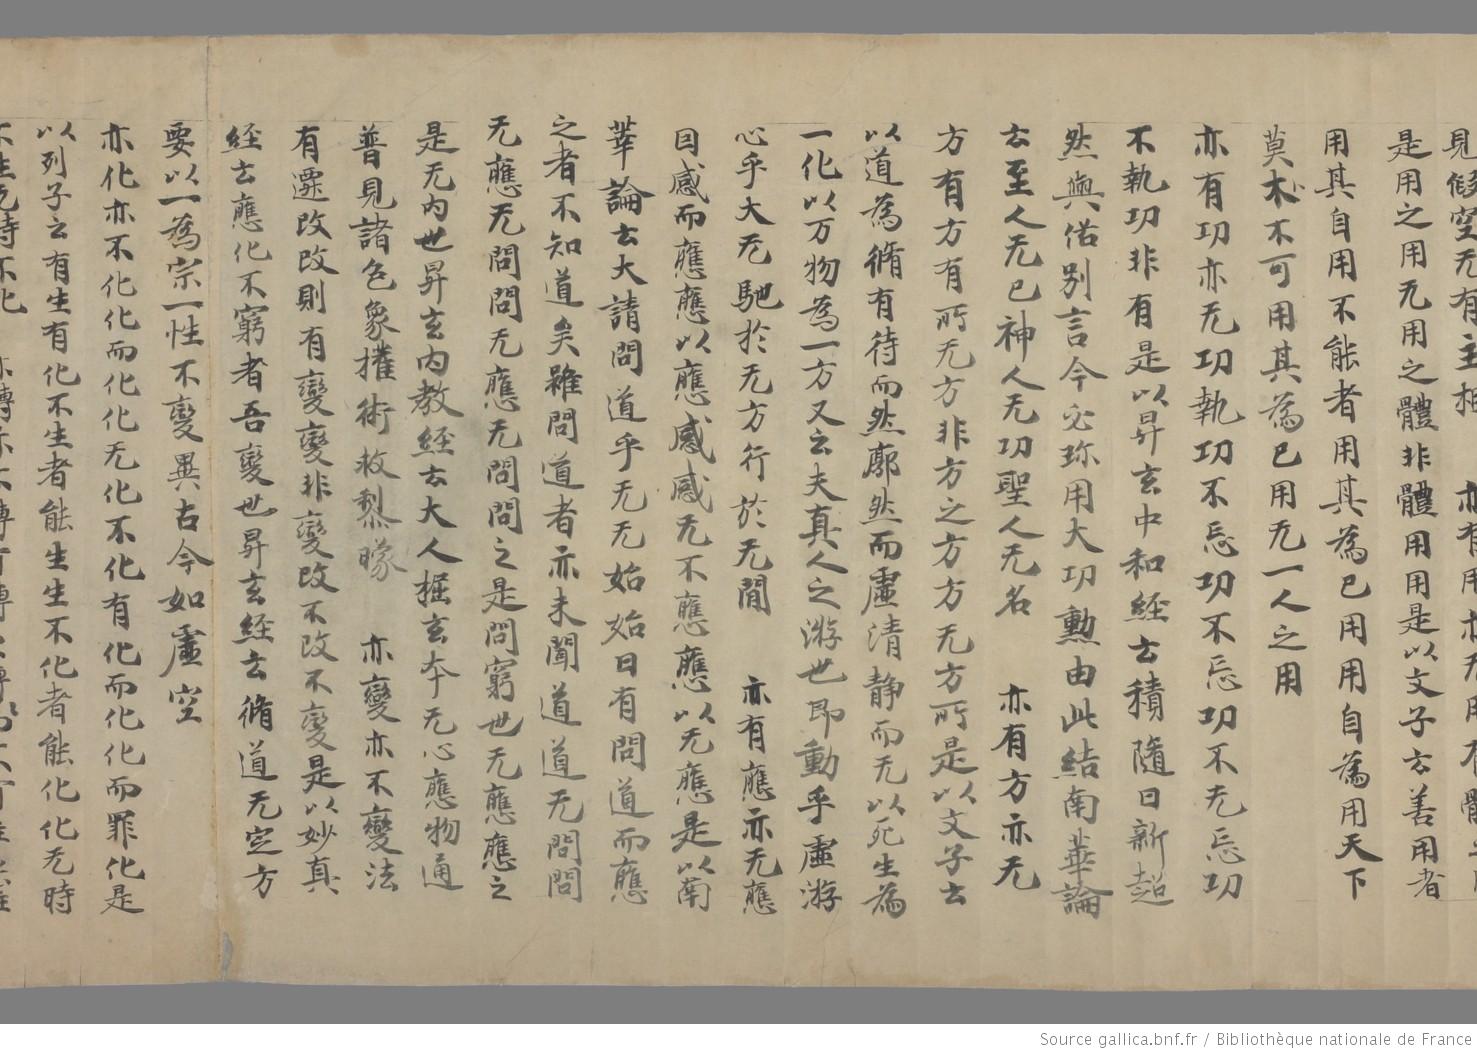 見假空无有主相　亦有用亦无用有體
是用之用无用之體非體用用是以文子云善用者
用其自用不能者用其為己用用自為用天下
莫不可用其為己用无一人之用
亦有功亦无功執功不忘功不忘功不无忘功
不執功非有是以昇玄中和經云積隨日新超
然與俗別言今必珎用大功勲由此結南華論
云至人无己神人无功聖人无名　亦有方亦无
方有方有所无方非方之方方无方所是以文子云
以道為脩有待而然廓然而虛清静而无以死生為
一化以万物為一方又云夫真人之游世即動乎虛游
心乎大无馳於无方行於无間　亦有應亦无應
因感而應應以應感感无不應應以无應是以南
華論云大請問道乎无无始始曰有問道而應
之者不知道矣雖問道者亦未聞道道无問問
无應无問問无應无問問之是問窮也无應應之
是无内也昇玄内教經云大人握玄本无心應物通
普見諸色象權術救黎曚　亦變亦不變法
有遷改改則有變變非變改不改不變是以妙真
經云應化不窮者吾變也昇玄經云脩道无定方
要以一為宗一性不變異古今如虛空
亦化亦不化化而化化无化不化有化而化化而罪化是
以列子云有生有化不生者能生生不化者能化化无時
不生无時不化　亦轉亦不轉